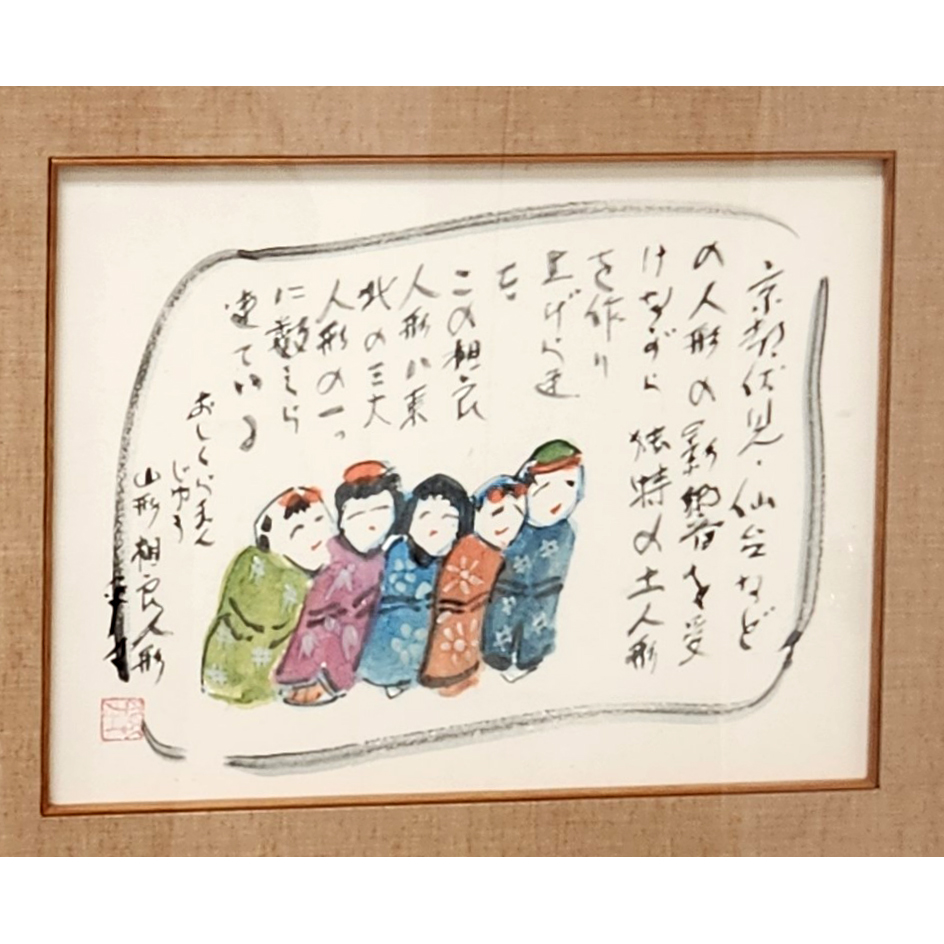 京都伏見・仙台など
の人形の影響を受
けながら 独特の土人形
を作り
上げられ
た
この相良
人形は東
北の三大
人形の一つ
に数えら
れている
おしくらまん
じゅう
山形 相良人形